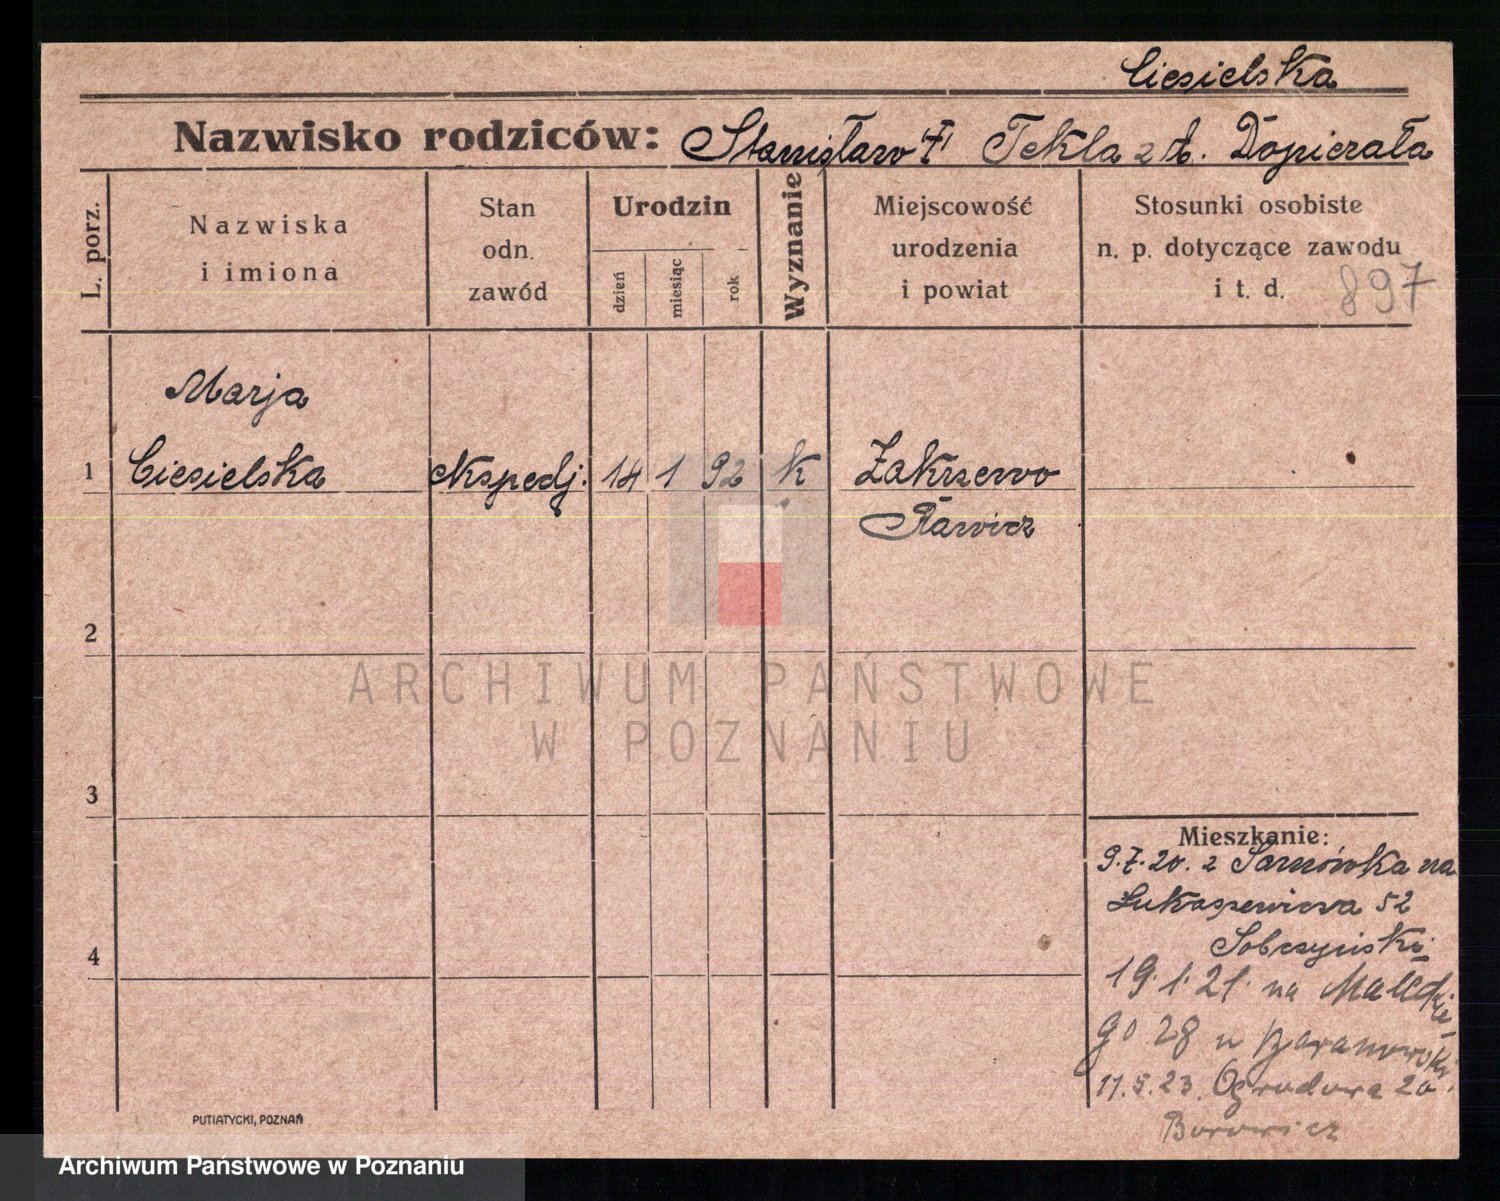 Ciesielska
Nazwisko rodziców: Stanisław † Tekla z d. Dopierała
L. porz.
Nazwiska
i imiona
Stan
odn.
zawód
Urodzin
dzień
miesiąc
rok
Wyznanie
Miejscowość
urodzenia
i powiat
Stosunki osobiste
n. p. dotyczące zawodu
i t. d.
897
Marja
1 Ciesielska Ekspedj. 14 1 92 k Zakrzewo
Rawicz
2
3
4
Mieszkanie:
9.7.20. z Sarnówka na
Łukaszewicza 52
Sobczyński
19.1.21. na Małeckie-
go 28 u Baranowski
11.5.23. Ogrodowa 20
Borowicz
PUTIATYCKI, POZNAŃ
ARCHIWUM PAŃSTWOWE
W POZNANIU
Archiwum Państwowe w Poznaniu